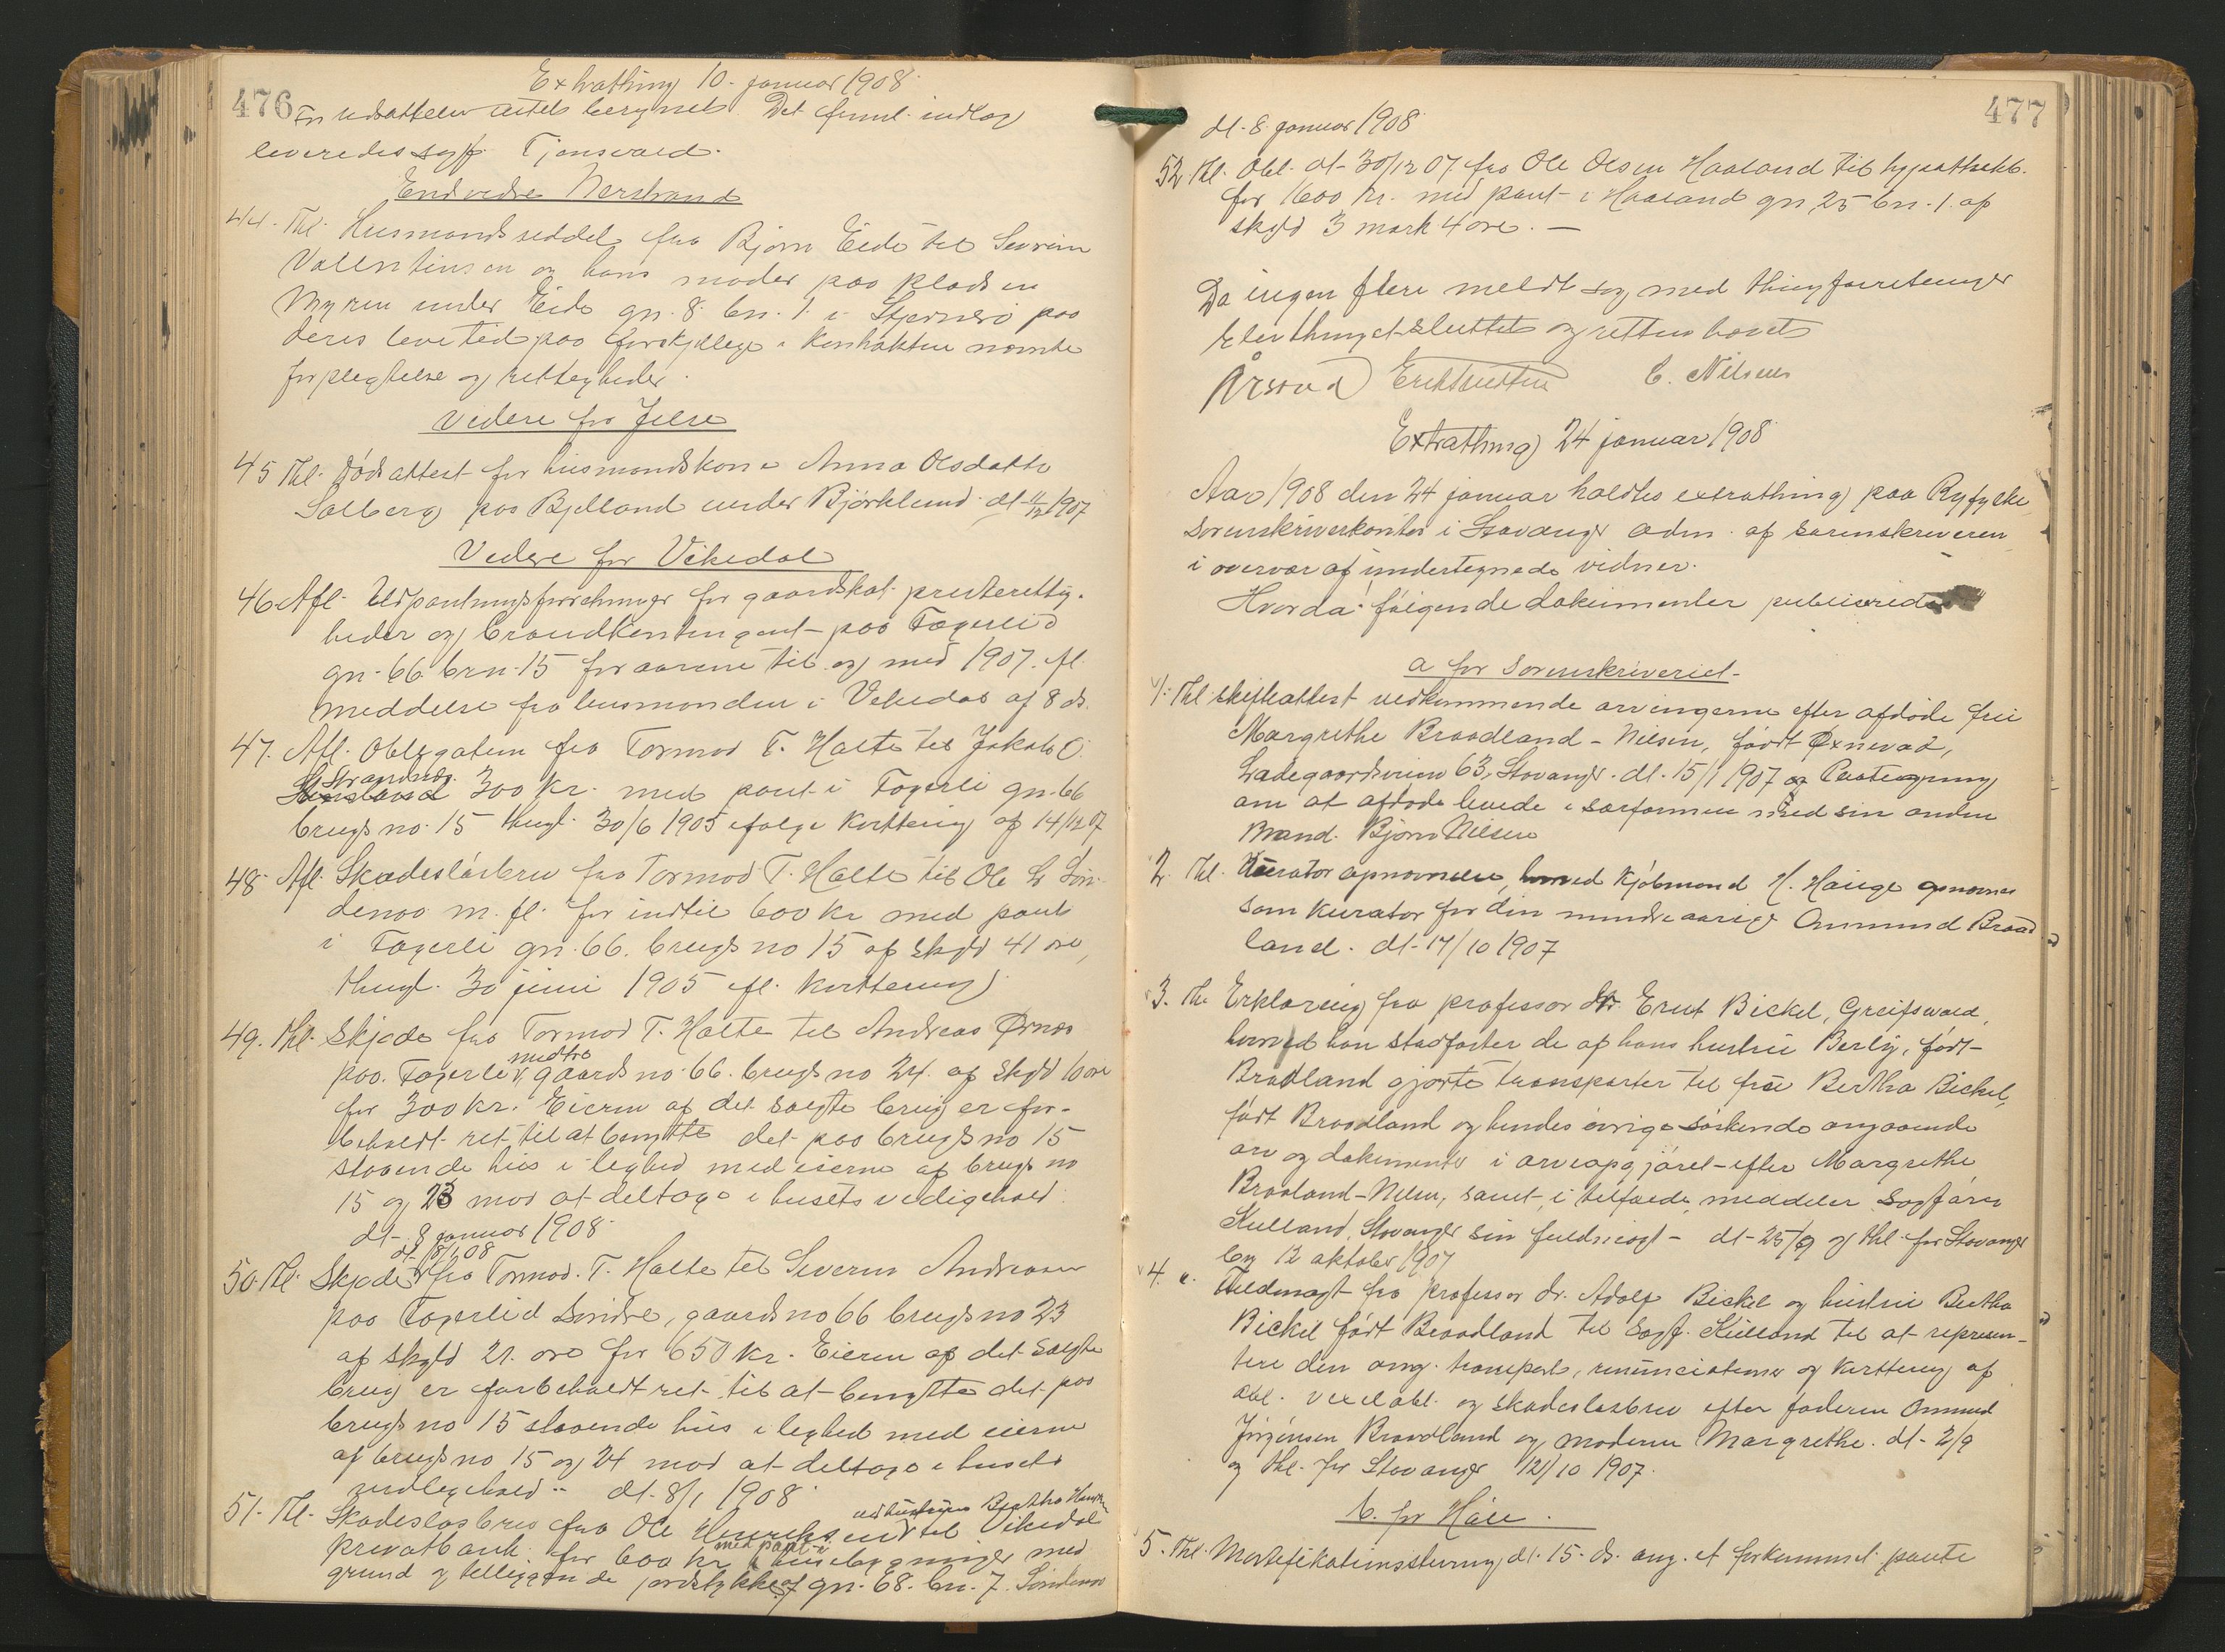 476
Extrathing 10. januar 1908
En udsættelse antoges begjæret. Det fremt. indlæg
leveredes sagf. Tjensvold.
Endvidre Nerstrand
44. Thl. Husmandsseddel fra Bjørn Eide til Severin
Valentinsen og hans moder paa pladsen
Myren under Eide gn. 8. bn. 1. i Stjernerø paa
deres levetid paa forskjellige i kontrakten nævnte
forpligtelse og rettigheder.
Videre for Jelse
45 Thl. Dødsattest for husmandskone Anna Olsdatter
Solberg paa Bjelland under Bjørklund dt. 11/12 1907
Videre for Vikedal
46 Afl. Udpantningsforretninger for gaardskat presterettig-
heder og brandkontingent paa Fagerlid
gn. 66. brn. 15 for aarene til og med 1907. fl.
meddelse fra lensmanden i Vikedal af 8 ds.
47. Afl. Obligation fra Tormod T. Halte til Jakob O.
Strandnæs 300 kr. med pant i Fagerli gn. 66
brugs no. 15 thingl. 30/6 1905 ifølge kvittering af 14/12 07
48 Afl. Skadesløsbrev fra Tormod T. Halte til Ole L Søn-
denaa m. fl. for indtil 600 kr med pant
i Fagerli gn. 66. brugs no 15 af skyld 41 øre,
thingl. 30 juni 1905 ifl. kvittering
49. Thl. Skjøde fra Tormod T. Halte til Andreas Ørnes
paa Fagerli nedre gaards no. 66. brugs no 24. af skyld 10 øre
for 300 kr. Eieren af det solgte brug er for-
beholdt ret til at benytte det paa brugs no 15
staaende hus i lighed med eierne af brugs no
15 og 23 mod at deltage i husets vedligehold
dt. 8 januar 1908
50. Thl. Skjøde dt. 8/1 08 fra Tormod. T. Halte til Severin Andreasen
paa Fagerlid Søndre, gaards no 66 brugs no 23
af skyld 21. øre for 650 kr. Eieren af det solgte
brug er forbeholdt ret til at benytte det paa
brugs no 15 staaende hus i lighed med eierne
af brugs no 15 og 24 mod at deltage i husets
vedligehold dt. 8/1 1908.
51. Thl. Skadesløsbrev fra Ole Henriksen og hustru Bertha til Vikedal
privatbank for 600 kr med pant i husebygninger med
grund og tilliggende jordstykke af gn. 68. bn. 7. Søndenaa
477
dt. 8 januar 1908
52 Thl. Obl. dt. 30/12 07 fra Ole Olsen Haaland til hypothekb.
for 1600 kr. med pant i Haaland gn. 25 bn. 1. af
skyld 3 mark 4 øre. —
Da ingen flere meldt sig med thingforretninger
blev thinget sluttet og retten hævet
Årsvold Erik Knutsen C. Nilsen
Extrathing 24 januar 1908
Aar 1908 den 24 januar holdtes extrathing paa Ryfylke
sorenskriverkontor i Stavanger adm. af sorenskriveren
i overvær af undertegnede vidner.
Hvorda følgende dokumenter publiceredes
a for Sorenskriveriet.
1. Thl. skifteattest vedkommende arvingerne efter afdøde fru
Margrethe Braadland-Nilsen, født Øxnevad,
Ladegaardsveien 63, Stavanger. dt. 15/1 1907 og Paategning
om at afdøde levede i særformue med sin anden
Mand. Bjørn Nilsen
2. Thl. Kuratoropnævnelse, hvorved kjøbmand H. Hauge opnævnes
som kurator for den mindreaarige Ommund Braad
land. dt. 17/10 1907
3. Thl. Erklæring fra professor dr. Ernst Bickel, Greifswald,
hvorved han stadfæster de af hans hustru Berly, født
Bradland gjorte transporter til frue Bertha Bickel,
født Braadland og hendes øvrige søskende angaaende
arv og dokumenter i arveopgjøret efter Margrethe
Braaland-Nilsen, samt i tilfælde meddeler Sagfører
Kielland, Stavanger sin fuldmagt dt. 25/9 og thl. for Stavanger
by 12 oktober 1907
4. " Fuldmagt fra professor dr. Adolf Bickel og hustru Bertha
Bickel født Braadland til Sagf. Kielland til at represen-
tere dem ang. transport, renunciationer og kvittering af
obl. vexelobl. og skadesløsbrev efter faderen Ommund
Jørgensen Braadland og moderen Margrethe. dt. 2/9
og thl. for Stavanger 12/10 1907.
b. for Håle.
5. Thl. Mortifikationsstevning dt. 15. ds. ang. et forkommet pante